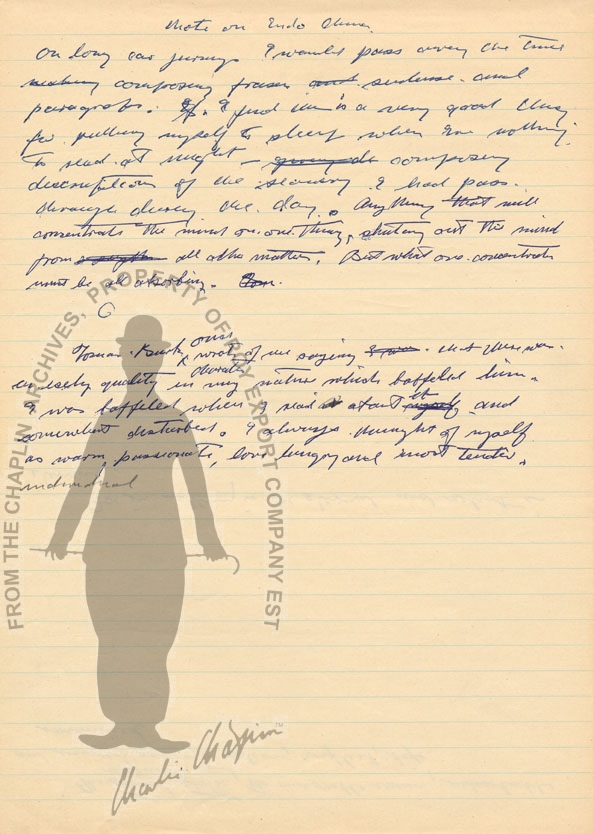 Note on Indo China.
On long car journeys I would pass away the time
making composing frases and sentense and
paragrafs. If. I find this is a very good thing
for putting myself to sleep when Ive nothing
to read at night – composing
descriptions of the scenery I had pass
through during the day. Anything that will
concentrate the mind on one thing, shuting out the mind
from all other matters. But what one concentrate
must be all absorbing.
Thomas Burke once wrote of me saying that there was
an icely quality in my nature which baffeled him.
character
I was baffeled when I read about it and
somewhat disturbed. I always thought of myself
as warm, passionate, love hungry and most tender
individual
FROM THE CHAPLIN ARCHIVES, PROPERTY OF ROY EXPORT COMPANY EST
Charlie Chaplin™